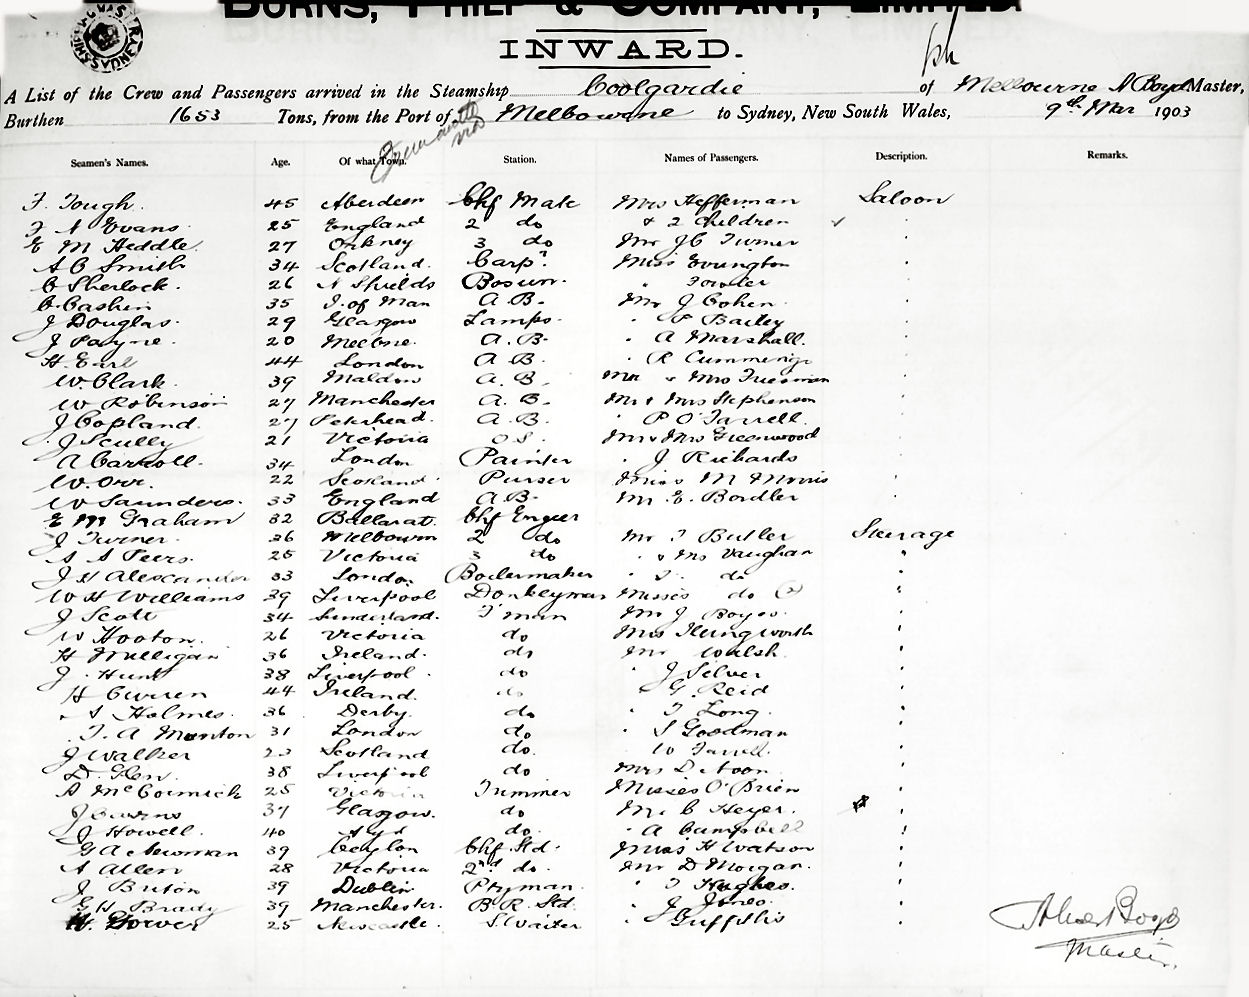 BURNS, PHILP & COMPANY, LIMITED.
INWARD.
A List of the Crew and Passengers arrived in the Steamship Coolgardie of Melbourne A Boyd Master,
Burthen 1653 Tons, from the Port of Melbourne to Sydney, New South Wales, 9th Mar 1903
via
Seamen's Names. Age. Of what Town. Station. Names of Passengers. Description. Remarks.
F. Tough. 45 Aberdeen Chf Mate Mrs Hefferman Saloon
F A Evans 25 England 2 do & 2 Children
E M Heddle. 27 Orkney 3 do Mr J C Turner
A C Smith 34 Scotland. Carpr. Miss Evington
C Sherlock. 26 N Shields Bosun. " Fowler
C. Cashin 35 I. of Man A.B. Mr J Cohen.
J Douglas. 29 Glasgow Lamps. " Bailey
J Payne. 20 Melbne. A.B. " A Marshall.
H. Earl 44 London A.B. " R Cummings
W. Clark. 39 Maldon A.B. Mr & Mrs Freeman
W Robinson 27 Manchester A.B. Mr & Mrs Stephenson
J Copland. 27 Peterhead. A.B. " P O'Farrell.
J Scully 21 Victoria O.S. Mr & Mrs Greenwood
A Carroll. 34 London Painter " J Richards
W. Orr. 22 Scotland. Purser Miss M Morris
W Saunders. 33 England A.B. Mr E. Bordler
E M Graham 32 Ballarat. Chf Engier
J Turner. 36 Melbourn 2 do Mr T Butler Steerage
A A Peers. 25 Victoria 3 do " & Mrs Vaughan "
J H Alexander 33 London Boilermaker " T. do "
W H Williams 39 Liverpool Donkeyman Misses do (2) "
J Scott 34 Sunderland. F'man Mr J Boyes. "
W Hooton. 26 Victoria do Mrs Illingworth "
H Mulligan 36 Ireland. do Mr Walsh. "
J. Hunt 38 Liverpool. do " J Silver "
H Curren 44 Ireland. do " G. Reid "
A Holmes. 36 Derby. do " T Long. "
T. A Manton 31 London do " S Goodman "
J Walker 23 Scotland do. " W Farrell. "
D. Glen. 38 Liverpool do Mrs Denoon. "
A McCormick 25 Victoria Trimmer Misses O'Brien "
J Cairns 37 Glasgow. do Mr C Heyer. "
J Howell. 40 Ayr do. " A Campbell "
G A Newman 39 Ceylon Chf Std. Miss H Watson "
A Allen 28 Victoria 2nd do. Mr D Morgan. "
J Briton 39 Dublin Ptryman. " T Hughes. "
E H Brady 39 Manchester. B.R. Std. " J Jones. "
H. Gower 25 Newcastle. S. Waiter " Griffiths "
Albert Boyd
Master.